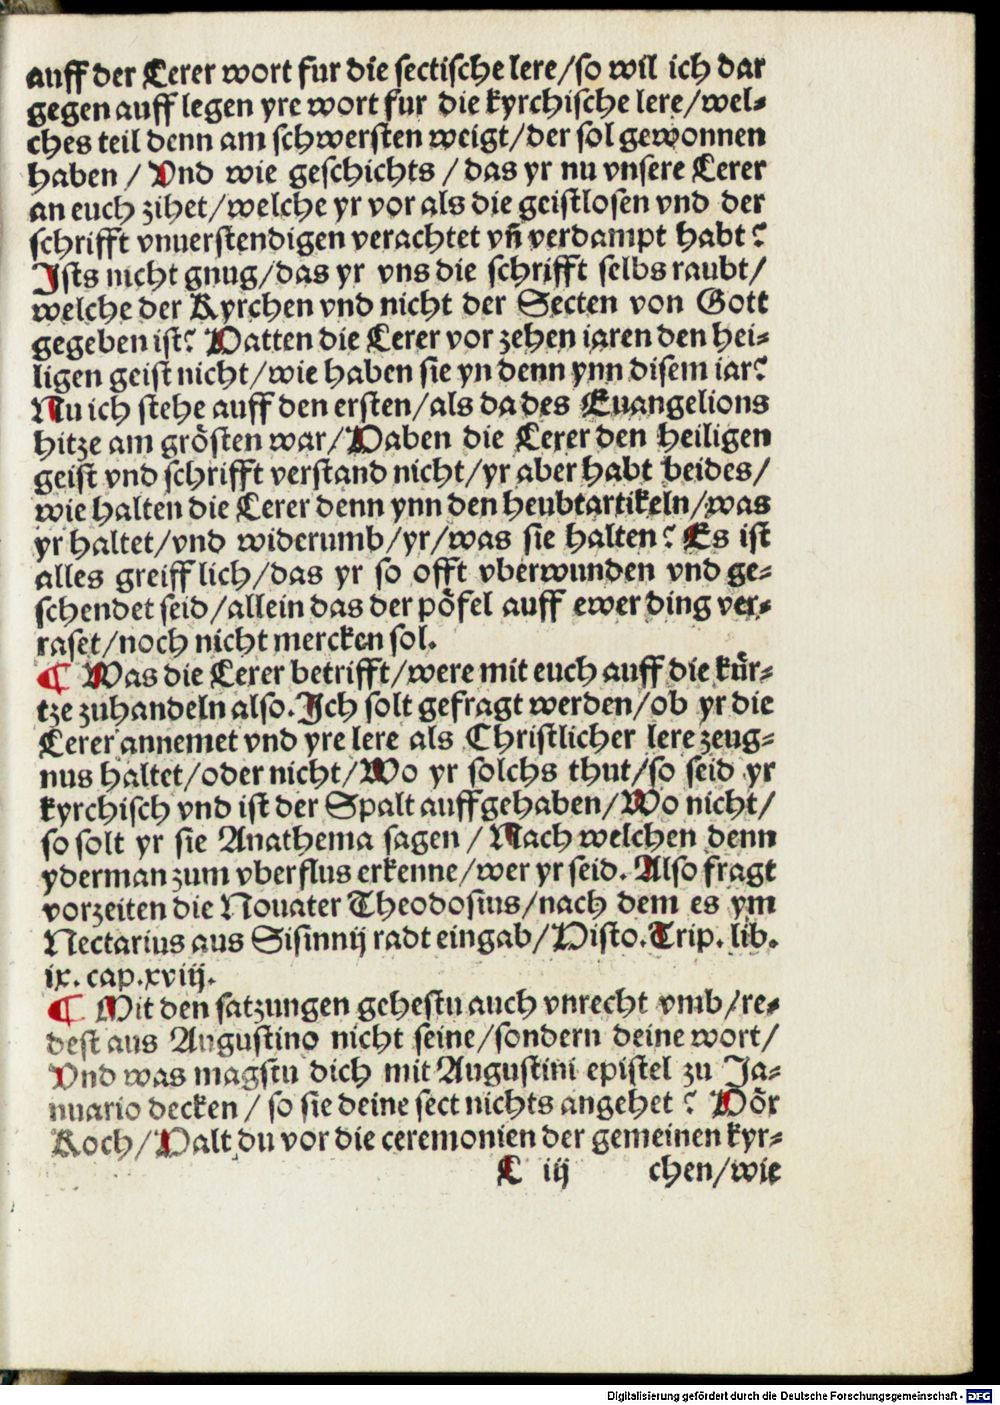 auff der Lerer wort fur die sectische lere/so wil ich dar
gegen auff legen yre wort fur die kyrchische lere/wel-
ches teil denn am schwersten weigt/der sol gewonnen
haben / Vnd wie geschichts / das yr nu vnsere Lerer
an euch zihet/welche yr vor als die geistlosen vnd der
schrifft vnuerstendigen verachtet vñ verdampt habt?
Ists nicht gnug/das yr vns die schrifft selbs raubt/
welche der Kyrchen vnd nicht der Secten von Gott
gegeben ist? Hatten die Lerer vor zehen iaren den hei-
ligen geist nicht/wie haben sie yn denn ynn disem iar?
Nu ich stehe auff den ersten/als da des Euangelions
hitze am grösten war/Haben die Lerer den heiligen
geist vnd schrifft verstand nicht/yr aber habt beides/
wie halten die Lerer denn ynn den heubtartikeln/was
yr haltet/vnd widerumb/yr/was sie halten? Es ist
alles greifflich/das yr so offt vberwunden vnd ge-
schendet seid/allein das der pöfel auff ewer ding ver-
raset/noch nicht mercken sol.
¶ Was die Lerer betrifft/were mit euch auff die kür-
tze zuhandeln also. Ich solt gefragt werden/ob yr die
Lerer annemet vnd yre lere als Christlicher lere zeug-
nus haltet/oder nicht/Wo yr solchs thut/so seid yr
kyrchisch vnd ist der Spalt auffgehaben/Wo nicht/
so solt yr sie Anathema sagen / Nach welchen denn
yderman zum vberflus erkenne/wer yr seid. Also fragt
vorzeiten die Nouater Theodosius/nach dem es ym
Nectarius aus Sisinnij radt eingab/Histo. Trip. lib.
ix. cap. xviij.
¶ Mit den satzungen gehestu auch vnrecht vmb/re-
dest aus Augustino nicht seine/sondern deine wort/
Vnd was magstu dich mit Augustini epistel zu Ja-
nuario decken / so sie deine sect nichts angehet? Hör
Koch/Halt du vor die ceremonien der gemeinen kyr-
C iij chen/wie
Digitalisierung gefördert durch die Deutsche Forschungsgemeinschaft - DFG